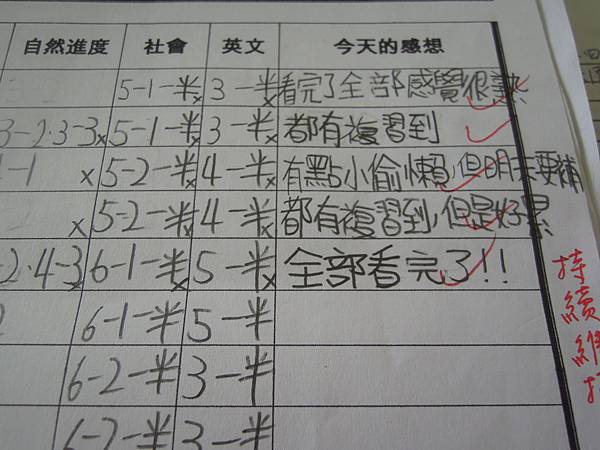 自然進度 社會 英文 今天的感想
5-1-半x 3-半x 看完了全部感覺很熱
3-2·3-3x 5-1-半x 3-半x 都有複習到
-1 x 5-2-半x 4-半x 有點小偷懶,但明天要補
x 5-2-半x 4-半x 都有複習到,但是好累
2·4-3x 6-1-半x 5-半x 全部看完了!!
6-1-半 5-半
6-2-半 3-半
6-2-半 3-半
持續維持